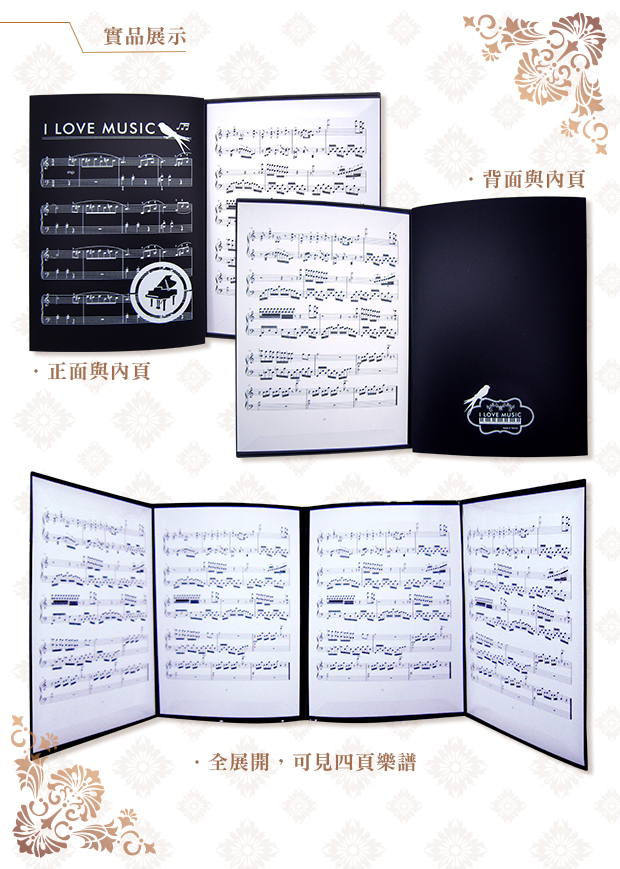 實品展示
I LOVE MUSIC
mp
· 背面與內頁
· 正面與內頁
I LOVE MUSIC
· 全展開，可見四頁樂譜